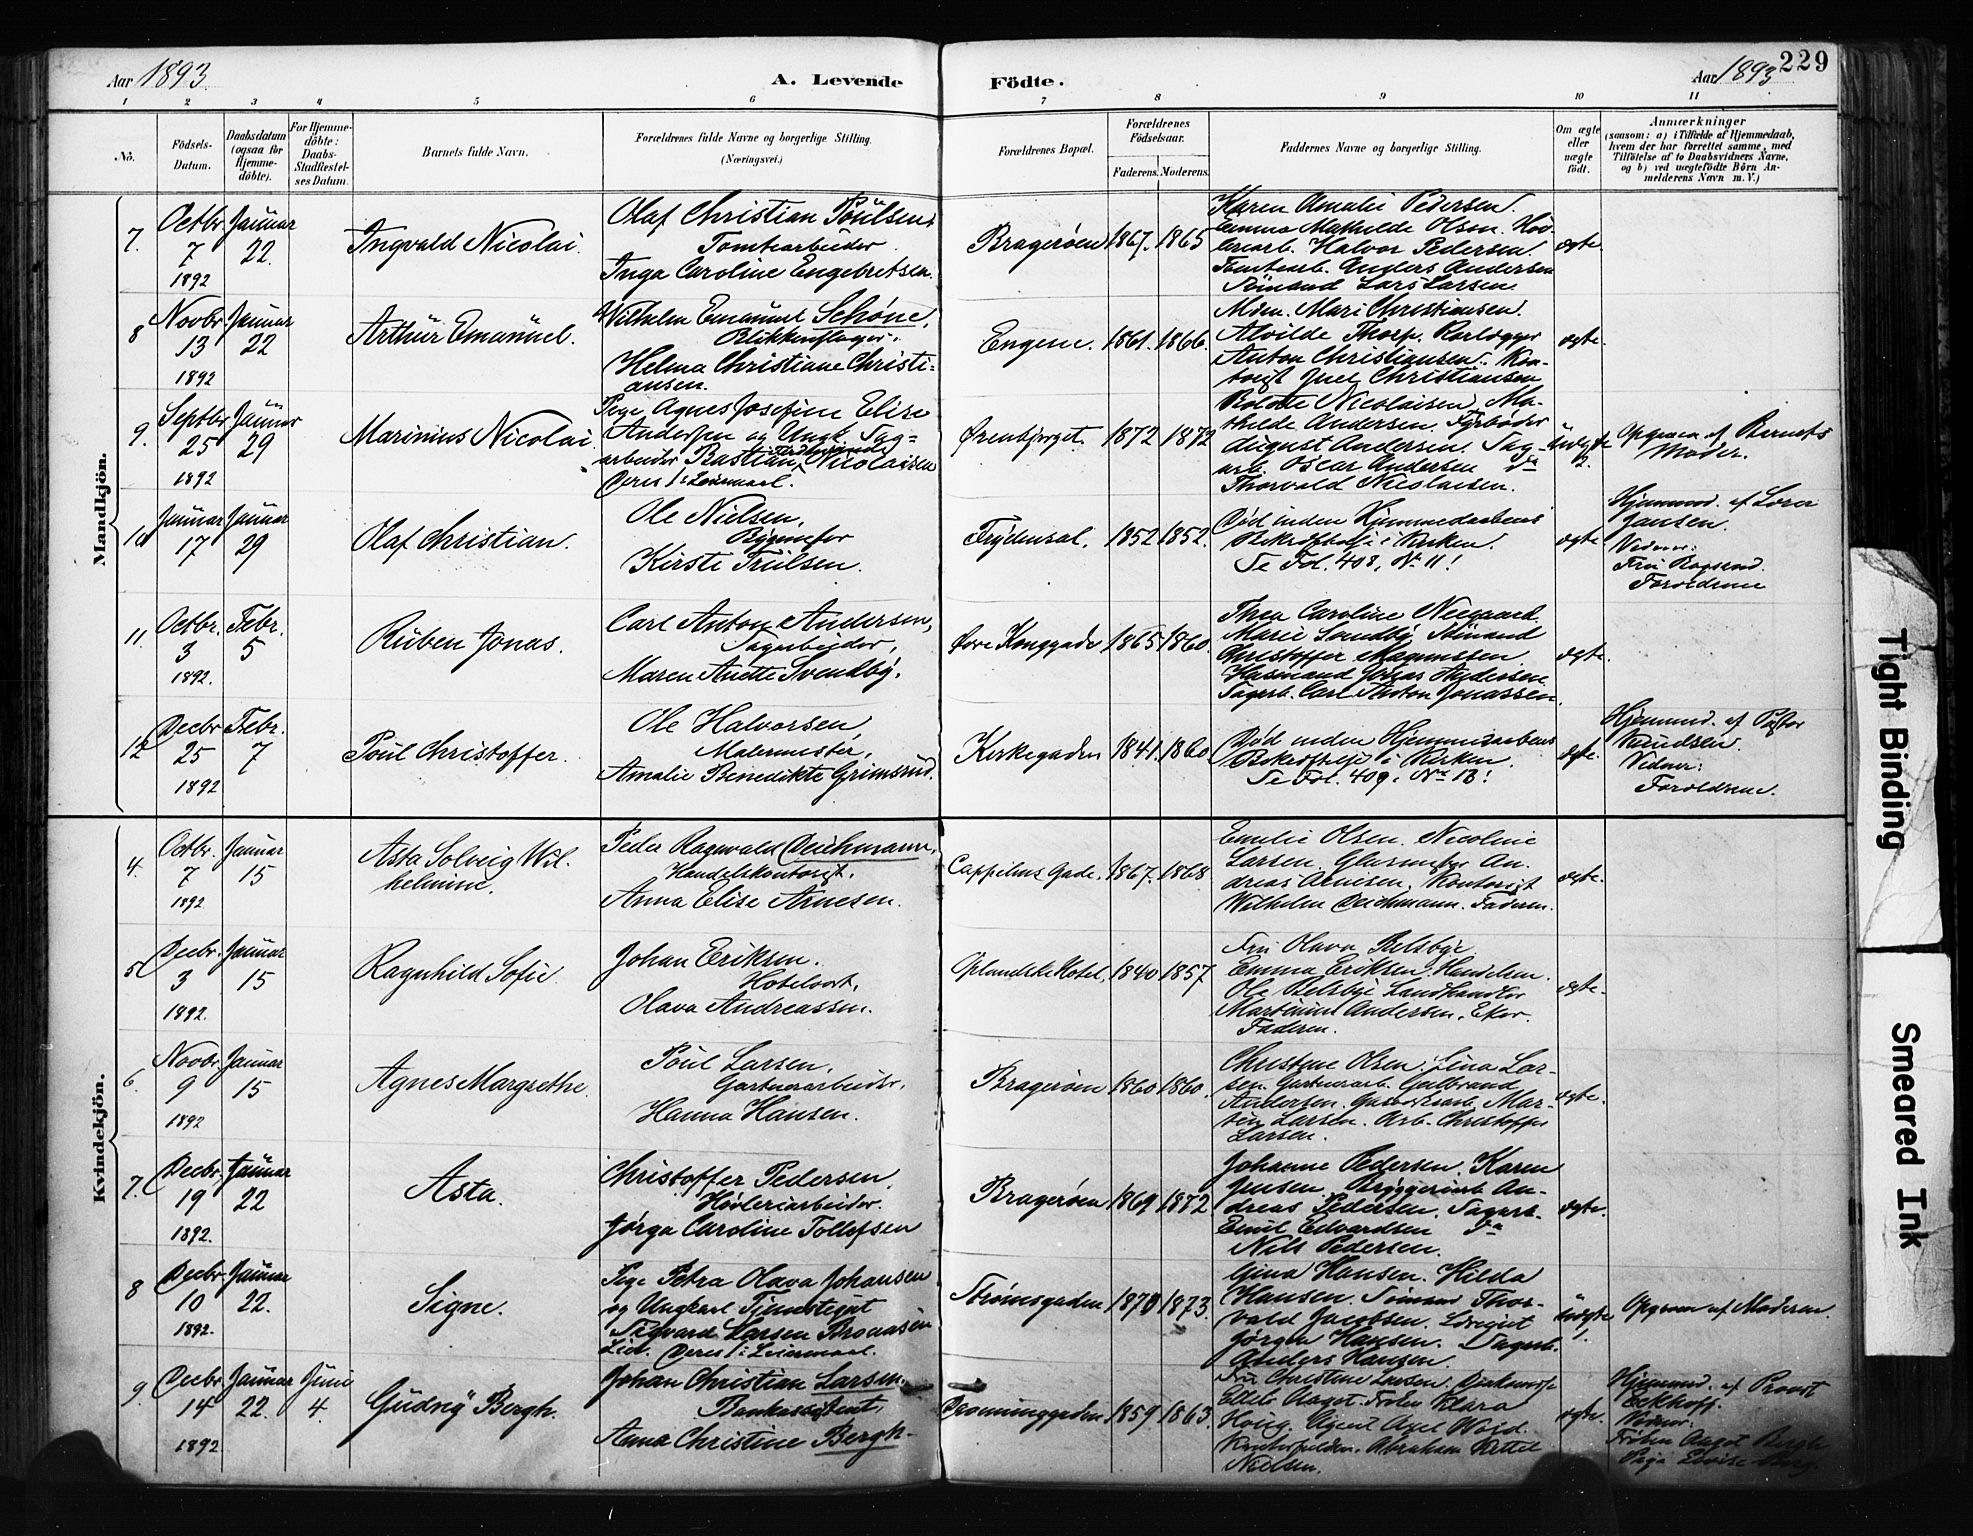 Aar 1893
A. Levende
Födte.
Aar 1893
229
1 2 3 4 5 6 7 8 9 10 11
No.
Födsels-
Datum.
Daabsdatum
(ogsaa for
Hjemme-
döbte).
For Hjemme-
döbte:
Daabs-
Stadfæstel-
ses Datum.
Barnets fulde Navn.
Forældrenes fulde Navne og borgerlige Stilling.
(Næringsvei.)
Forældrenes Bopæl.
Forældrenes
Födselsaar.
Faderens. Moderens.
Faddernes Navne og borgerlige Stilling.
Om ægte
eller
uægte
födt.
Anmærkninger
(saasom: a) i Tilfælde af Hjemmedaab,
hvem der har forrettet samme, med
Tilföielse af to Daabsvidners Navne,
og b) ved uægtefödte Börn An-
melderens Navn m. V.)
Mandkjön.
7.
Octbr.
7
1892
Januar
22.
Ingvald Nicolai.
Olaf Christian Poülsen,
Tomtearbeider
Inga Caroline Engebretsen.
Bragerøen
1867. 1865
Karen Amalie Pedersen.
Emma Mathilde Olsen. Høv-
leriarb. Halvor Pedersen.
Tomtearb. Anders Andersen
Sömand Lars Larsen
ægte.
8
Novbr.
13
1892
Januar
22
Arthür Emanüel.
Wilhelm Emanuel Schøne,
Blikkenslager,
Helma Christiane Christi-
ansen.
Engene.
1861. 1866.
Mdm. Mari Christiansen.
Alvilde Thorp. Rørlægger
Anton Christiansen. Kon-
torist Juel Christiansen
ægte.
9.
Septbr.
25
1892
Januar
29
Marinius Nicolai
Pige Agnes Josefine Elise
Andersen og Ungk. Dag-
arbeider Bastian Ferdinand Nicolaisen
Deres 1ste Leiermaal.
Ørenbjerget.
1872 1872
Nicolaisen. Ma-
thilde Andersen. Fyrbøder
August Andersen. Dag-
arb. Oscar Andersen do
Thorvald Nicolaisen.
üægte
Opgiven af Barnets
Moder.
10
Januar
17
Januar
29
Olaf Christian.
Ole Nielsen,
Kirste Trülsen.
Frydensal.
1852 1852.
Død inden Hjemmedaabens
Bekræftelse i Kirken.
Se Fol. 408, No 11!
ægte
Hjemmed. af
Jansen.
Vidner:
Fru
Forældrene
11.
Octbr.
3
1892.
Febr.
5
Rüben Jonas.
Carl Anton Andersen,
Dagarbeider,
Maren Anette Svendby.
Øvre Konggade
1865 1860.
Thea Caroline Neegaard.
Marie Sundby Sömand
Christoffer Magnussen
Husmand Johas Andersen
Dagarb. Carl Anton Jonassen.
ægte.
12
Decbr
25
1892
Febr.
7
Poül Christoffer.
Ole Halvorsen,
Malermester,
Amalie Benedikte Grimsrud.
Kirkegaden
1841. 1860
Død inden Hjemmedaabens
Bekræftelse i Kirken.
Se Fol. 409. No 13!
ægte.
Hjemmed. af Pastor
Knudsen.
Vidner:
Forældrene.
Kvindekjön.
4.
Octbr.
7
1892
Januar
15
Asta Solveig Wil-
helmine.
Peder Ragnvald Deichmann,
Handelskontorist.
Anna Elise Arnesen.
Cappelens Gade.
1867. 1868
Emelie Olsen. Nicoline
Larsen. An-
dreas Arnesen. Kontorist
Wilhelm Deichmann. Faderen.
ægte.
5
Decbr.
3
1892.
Januar
15
Ragnhild Sofie
Johan Eriksen.
Hotelvert.
Olava Andreassen.
Oplandske Hotel.
1840 1857
Fru Olava Belsbye
Emma Eriksen.
Ole Belsbye Landhandler
Martinius Andersen. Eker.
Faderen.
ægte.
6.
Novbr.
9
1892
Januar
15
Agnes Margrethe.
Poül Larsen,
Gartnerarbeider.
Hanna Hansen.
Bragerøen
1860 1860.
Christine Olsen. Lina Lar-
sen. Gartnerarb. Gulbrand
Andersen. Gasværksarb. Mar-
tin Larsen. Arb. Christoffer
Larsen.
ægte.
7.
Decbr.
19
1892.
Januar
22
Asta.
Christoffer Pedersen,
Høvleriarbeider.
Jørga Caroline Tollefsen
Bragerøen
1869 1872
Johanne Pedersen. Karen
Jensen. Bryggeriarb. An-
dreas Pedersen. Dagarb.
Emil Edvardsen do
Nils Pedersen.
ægte.
8
Decbr
10
1892.
Januar
22.
Signe.
Pige Petra Olava Johansen
og Ungkarl Tjenestegut
Sigvard Larsen
Lier. Deres 1ste Leiermaal.
Strømsgaden
1870 1873.
Gina Hansen. Hilda
Hansen. Sömand Thor-
vald Jacobsen.
Jørgen Hansen. Dagarb.
Anders Hansen.
üægte
1.
Opgiven af Moderen.
9.
Decbr
14
1892
Januar
22.
Juni
4.
Güdny Bergh.
Johan Christian Larsen.
Bankassistent,
Anna Christine Bergh.
Dronninggaden
1859 1863.
Fru Christine Larsen.
Frøken Klara
Agent Axel Wold.
Abraham Kittel
Nielsen.
ægte.
Hjemmed. af Provst
Eckhoff.
Vidner:
Frøken Aagot Bergh
Pige Lovise Berg.
Tight Binding
Smeared Ink